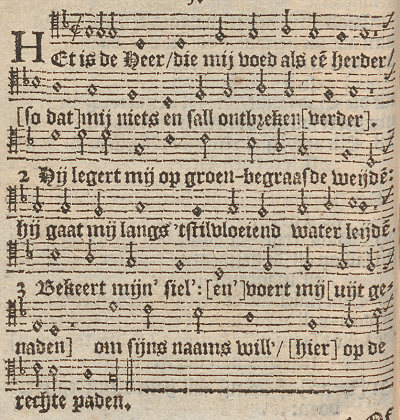 HEt is de Heer/die mij voed als eē herder/
[so dat]mij niets en sall ontbꝛeken[verder].
2 Hij legert mij op groen-begraasde weijdē:
hij gaat mij langs 'tstilvloeiend water leijdē.
3 Bekeert mijn' siel': [en']voert mij[uijt ge-
naden] om sijns naams will'/ [hier] op de
rechte paden.